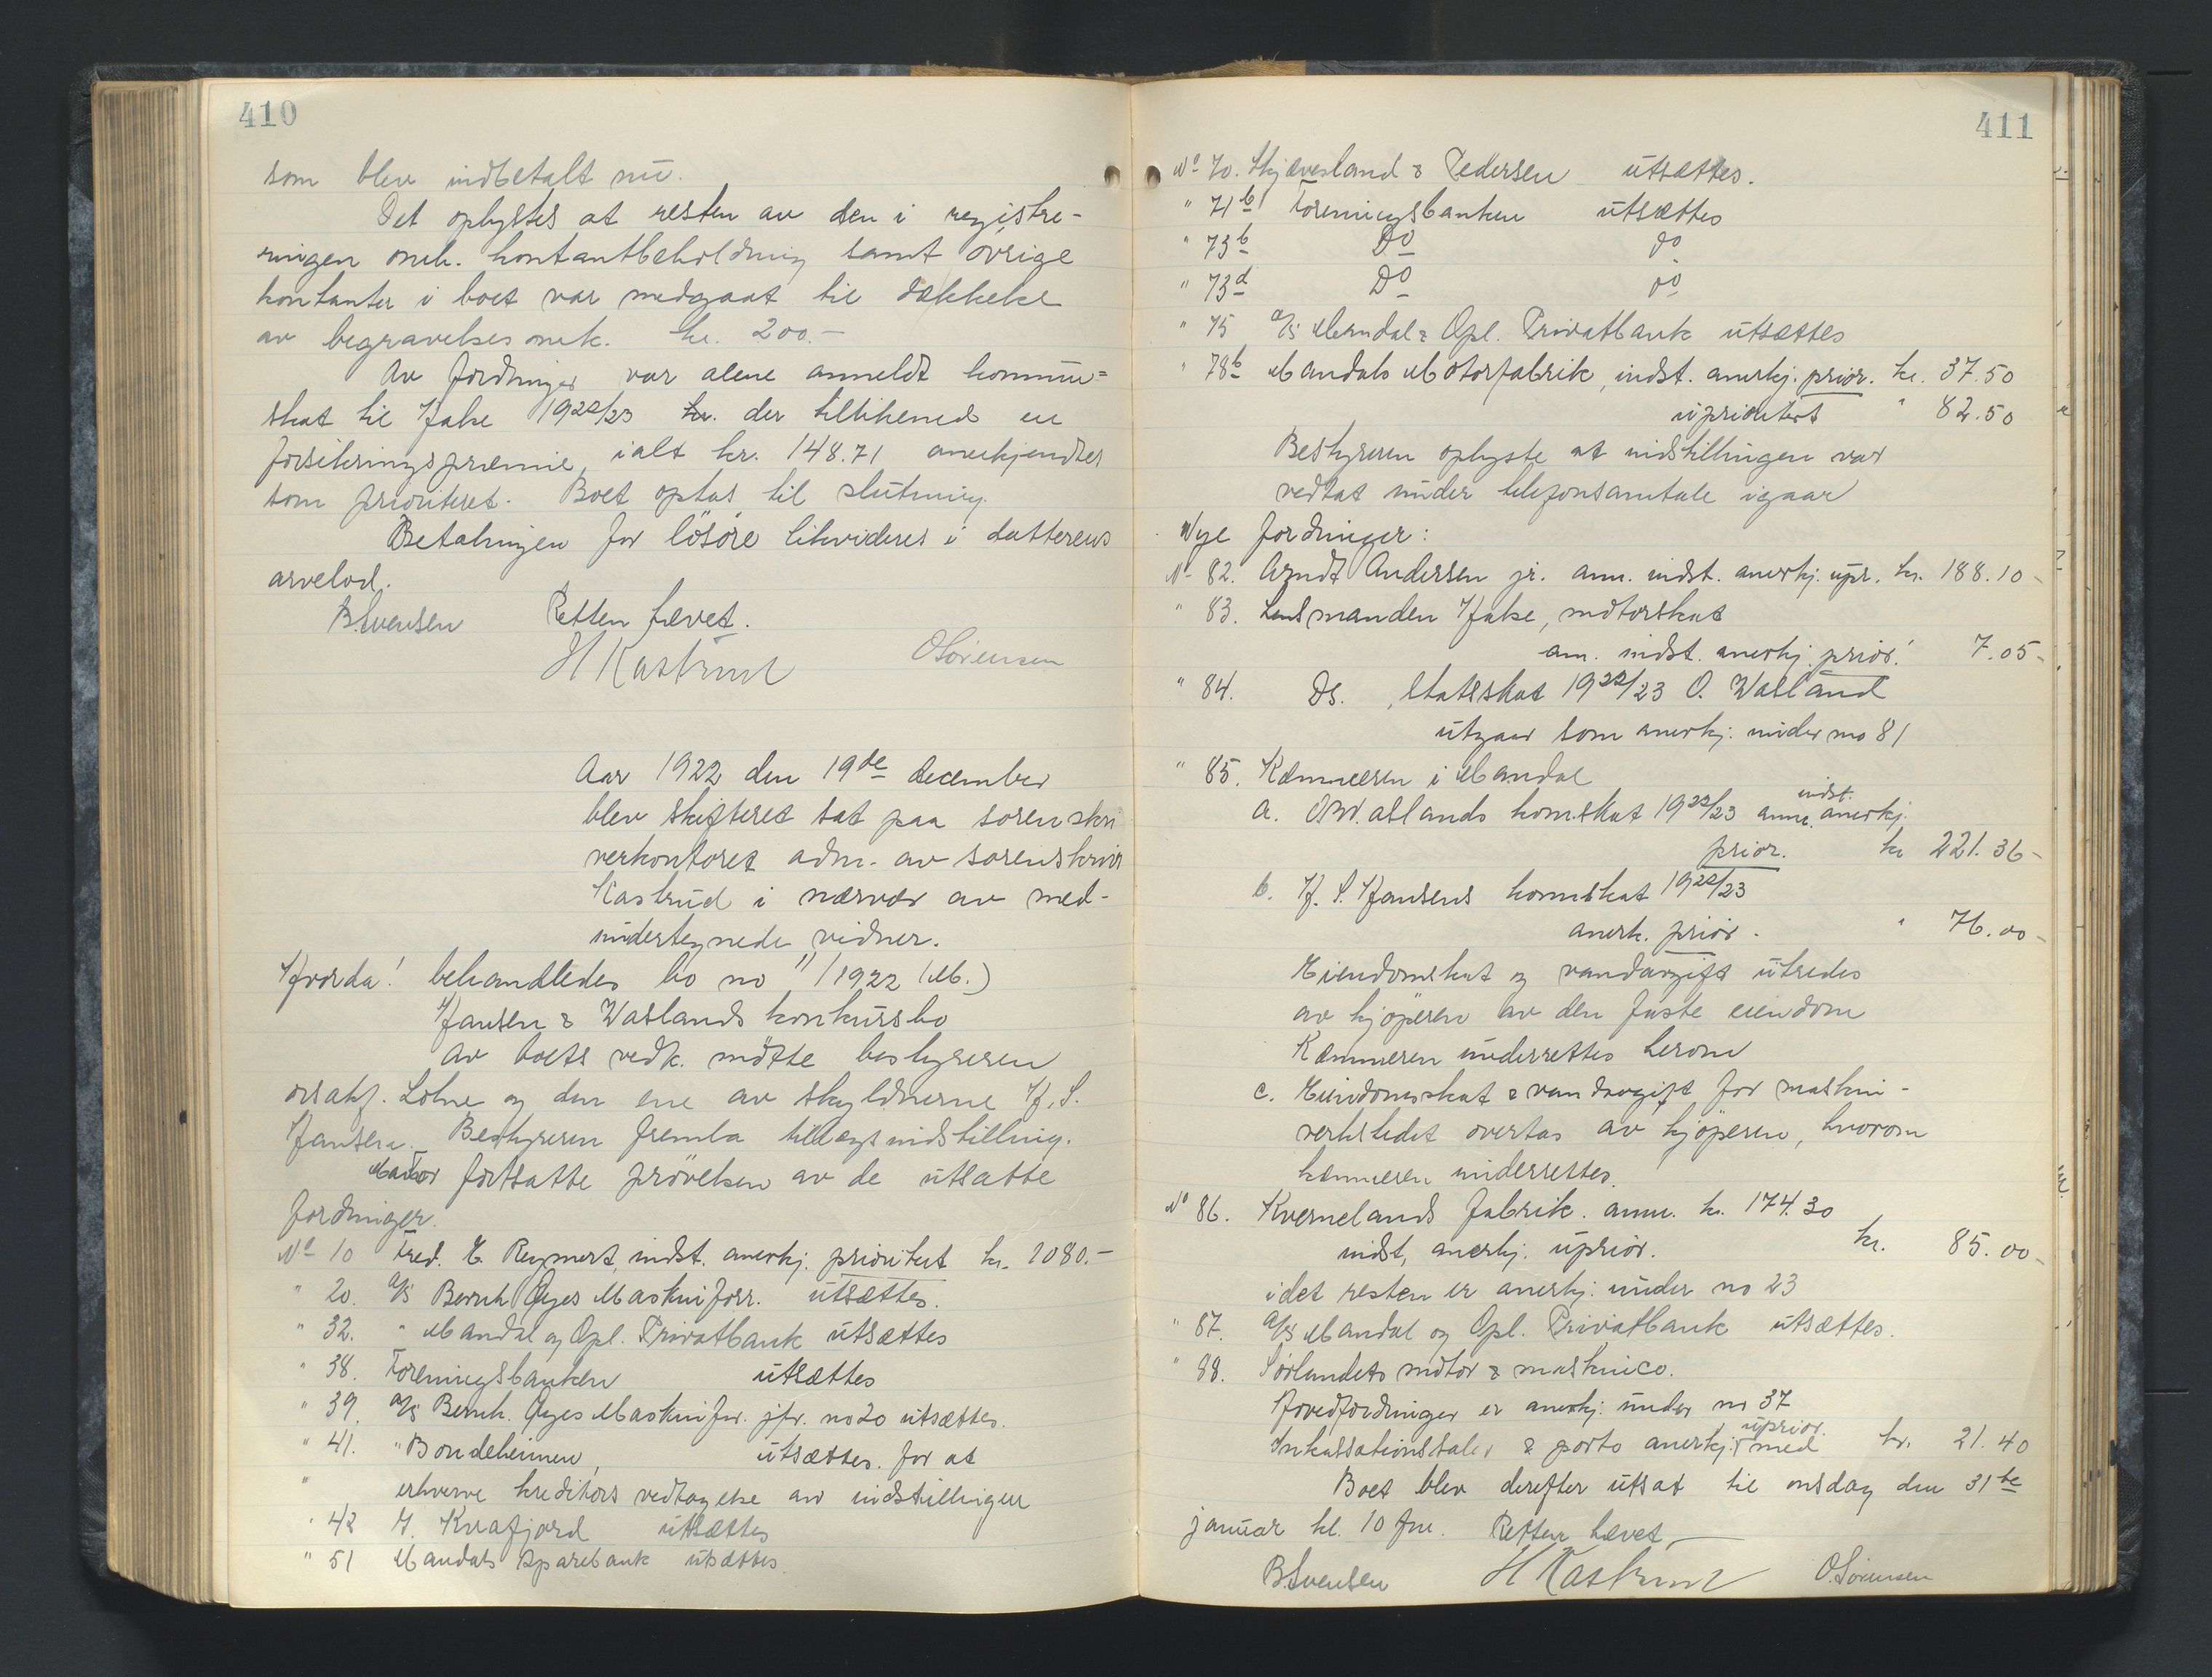 410
som blev indbetalt nu.
Det oplystes at resten av den i registre-
ringen omh. kontantbeholdning samt øvrige
kontanter i boet var medgaat til dækkelse
av begravelsesomk. kr. 200.-
Av fordringer var alene anmeldt kommu-
skat til Halse 1922/23 der tillikemed en
forsikringspræmie, ialt kr. 148.71 anerkjendtes
som prioriteret. Boet optas til slutning.
Betalingen for løsøre likvideres i datterens
arvelod.
Retten hævet.
B. Svensen H Kastrud O Sørensen
Aar 1922 den 19de december
blev skifteret sat paa sorenskri
verkontoret adm. av sorenskriver
Kastrud i nærvær av med-
undertegnede vidner.
Hvorda! behandledes bo no 11/1922 (M.)
Hansen & Waslands konkursbo
Av boets vedk. møtte bestyreren
orsakf. Lohne og den ene av skyldnerne H. S.
Hansen. Bestyreren fremla tillægsindstilling.
fortsatte prøvelsen av de utsatte
fordringer.
No 10 Fred. E. Reymert, indst. anerkj. prioritert kr. 1080.-
" 20. A/S Bernh Øyes Maskinforr. utsættes.
" 32. " Mandal og Opl. Privatbank utsættes
" 38. Foreningsbanken utsættes
" 39. A/S Bernh. Øyes Maskinfor. jfr. no 20 utsættes.
" 41. "Bondeheimen, utsættes. for at
" erhverve kreditors vedtagelse av indstillingen
" 42 Kvafjord utsættes
" 51 Mandals Sparebank utsættes.
411
No 70. Skjævesland & Pedersen utsættes.
" 71b Foreningsbanken utsættes
" 73b Do do
" 73d Do do
" 75 A/S Mandal & Opl. Privatbank utsættes
" 78b Mandals Motorfabrik, indst. anerkj. prior. kr. 37.50
uprioritert " 82.50
Bestyreren oplyste at indstillingen var
vedtat under telefonsamtale igaar
Nye fordringer:
No 82. Arndt Andersen jr. anm. indst. anerkj. upr. kr. 188.10-
" 83. Lensmanden Halse, motorskat
am. indst. anerkj. prior. 7.05-
" 84. Ds. , Statsskat 1922/23 O. Wasland
utgaar som anerkj. under no 81
" 85. Kæmneren i Mandal
a. O. Waslands komskat 1922/23 anm. indst. anerkj.
prior. kr 221.36-
b. H. S. Hansens komskat 1922/23
anerk. prior. " 76.00-
Eiendomskat og vandavgift utredes
av kjøperen av den faste eiendom
Kæmneren underrettes herom
c. Eiendomsskat & vandavgift for maskin-
verkstedet overtas av kjøperen, hvorom
kæmneren underrettes.
No 86. Kvernelands fabrik. anm. kr. 174.30
indst, anerkj. uprior. kr. 85.00-
idet resten er anerkj. under no 23
" 87. A/S Mandal og Opl. Privatbank utsættes.
" 88. Sørlandets motor & maskinco.
Hovedfordringen er anerkj. under no 37
Inkassationssalær & porto anerkj. uprior. med kr. 21.40
Boet blev derefter utsat til onsdag den 31te
januar kl. 10 fm. Retten hævet.
B. Svensen H Kastrud O. Sørensen